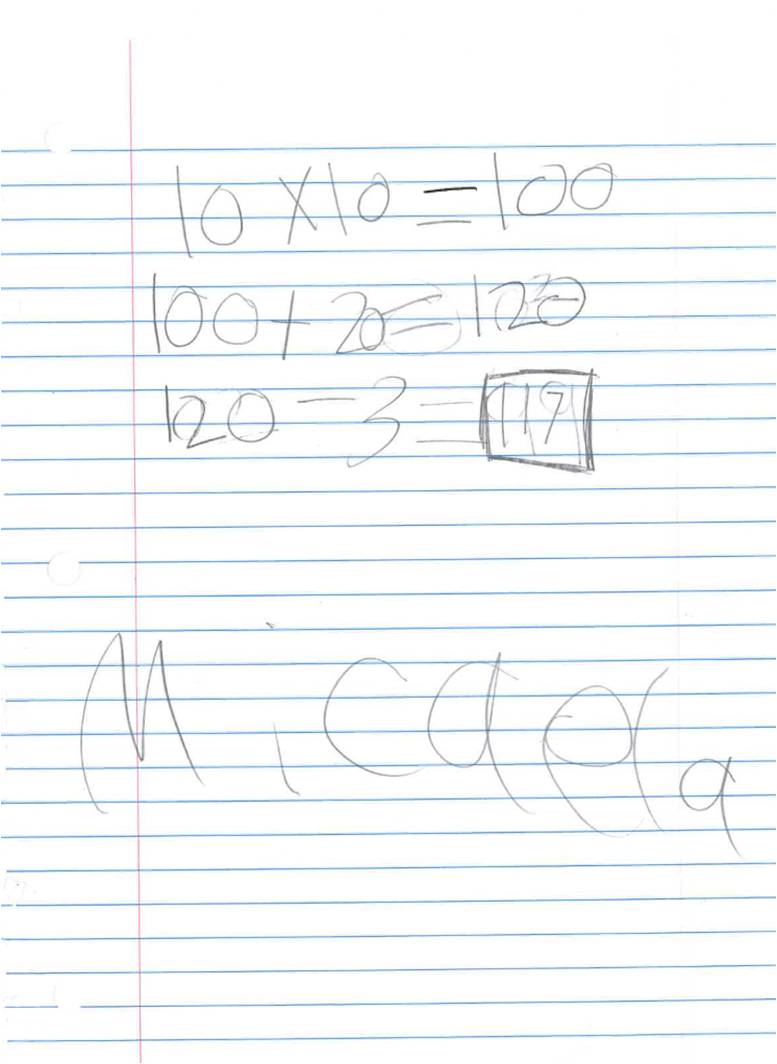 10 X 10 = 100
100 + 20 = 120
120 - 3 = 117
Micaela